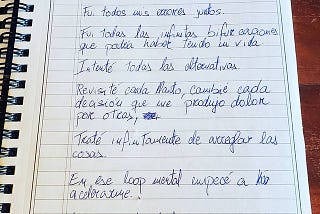 Fui todos mis errores juntos.
Fui todas las infinitas bifurcaciones
que podría haber tenido mi vida
Intenté todas las alternativas.
Revisité cada llanto, cambié cada
decisión que me produjo dolor
por otras,
Traté infinitamente de arreglar las
cosas.
En ese loop mental empecé a
acelerarme.